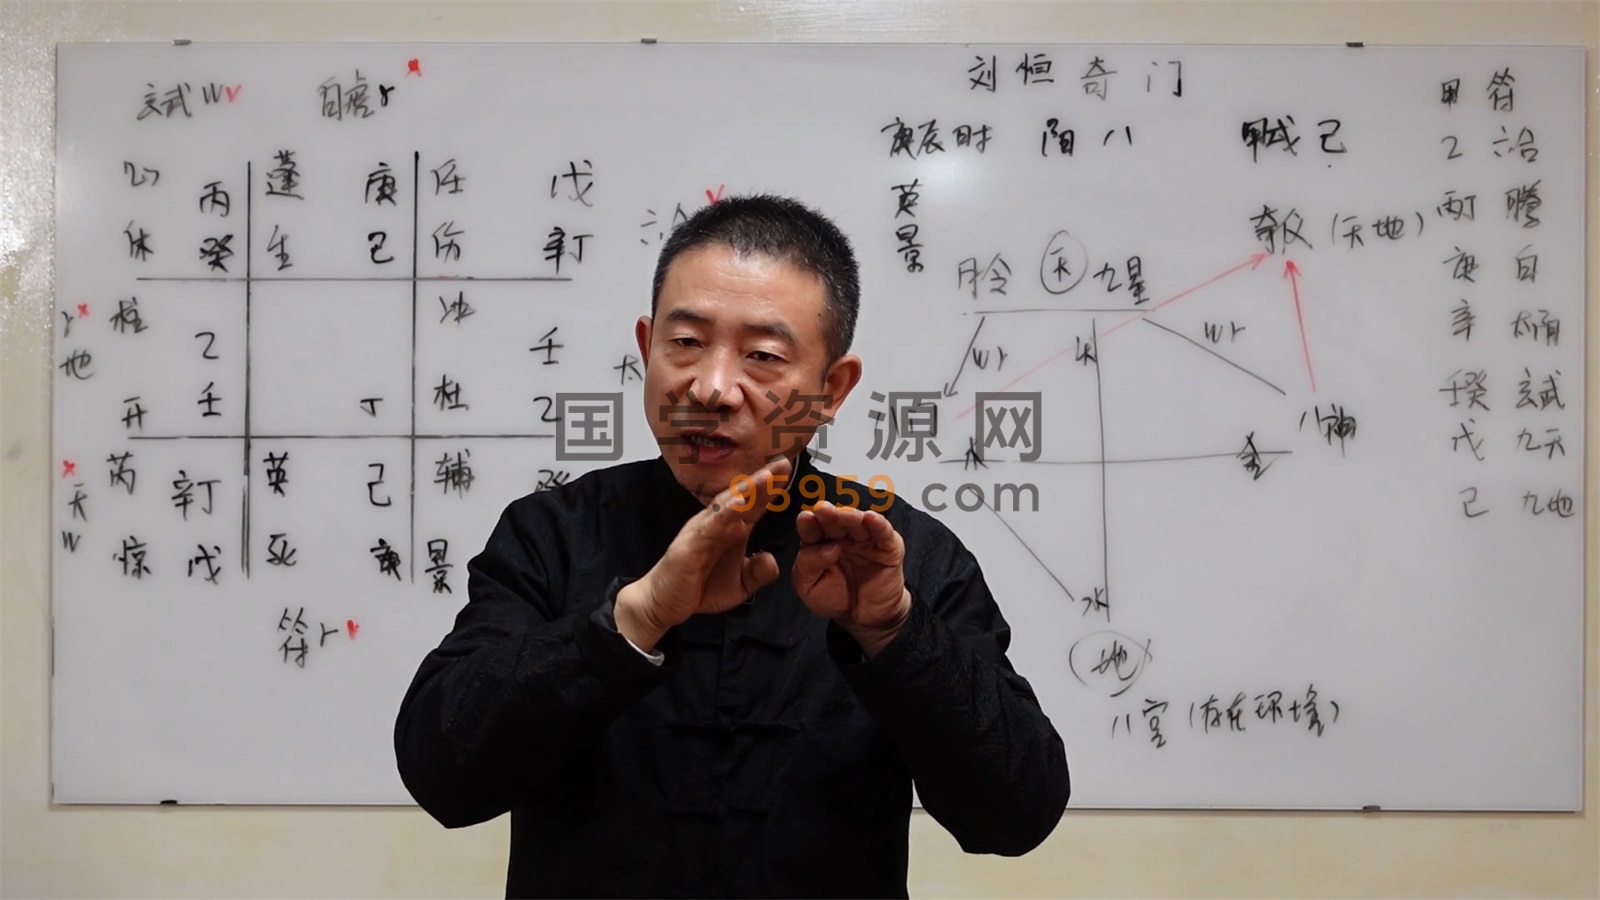 刘恒奇门
庚辰时 阳八 甲戌己
英
景
玄武 w
白虎 r
丙 蓬 庚 任 戊
休 癸 生 己 伤 辛丁
r 柱 冲
地 乙 壬
开 壬 丁 杜 乙
芮 辛丁 英 己 辅 癸
天
w
惊 戊 死 庚 景
符 r
六合
太
月令 天 九星
奇仪(天地)
wr wr
火
八门 八神
木 金
水
地
八宫(存在环境)
甲 符
乙 六合
丙丁 腾
庚 白
辛 太阴
壬癸 玄武
戊 九天
己 九地
国学资源网
.95959.com